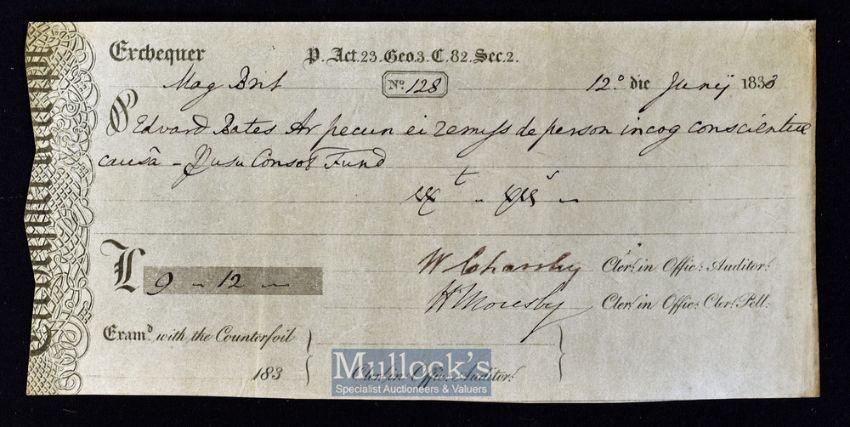 Exchequer P. Act. 23. Geo. 3. C. 82. Sec. 2.
Mag Brit No. 128 12° die Junij 1833
Edvard Bates Ar pecun ei remiss de person incog conscientiae
causâ - Fund
L 9 - 12 -
Cler. in Offic: Auditor:
H Moresby Cler. in Offic: Cler: Pell:
Examd. with the Counterfoil
183 Cler. in Offic: Auditor:
Mullock's
Specialist Auctioneers & Valuers